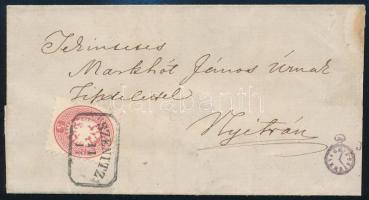 Tekintetes
Markhót János Úrnak
Tisztelettel
Nyitrán
SZENITZ